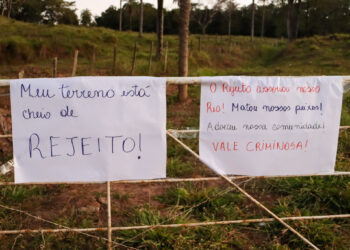 Meu terreno está
cheio de
REJEITO!
O Rejeito assoriou nosso
Rio! Matou nossos peixes!
Adoeceu nossa comunidade!
VALE CRIMINOSA!